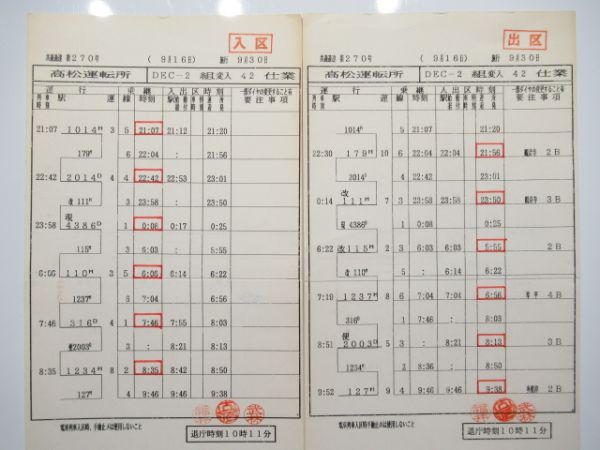 入区
共通通達 第270号 (9月16日) 施行 9月30日
高松運転所 DEC-2 組変入 42 仕業
運行 乗継 入出区時刻 一部ダイヤの変更すること有
列車 時刻 駅 運 線 時刻 要注事項
21:07 1014M 3 5 21:07 21:12 21:20
179M 6 22:04 : 21:56
22:42 2014D 4 4 22:42 22:53 23:01
改 111M 3 23:58 : 23:50
23:58 現 4386D 1 0:08 0:17 0:25
115M 3 6:03 : 5:55
6:06 110M 3 5 6:06 6:14 6:22
1237M 6 7:04 : 6:56
7:46 316D 4 1 7:46 7:55 8:03
便2003D 3 : 8:21 8:13
8:35 1234M 8 2 8:35 8:42 8:50
127M 4 9:46 : 9:38
電車列車入区時、手歯止メは使用しないこと
退庁時刻10時11分
出区
共通通達 第270号 (9月16日) 施行 9月30日
高松運転所 DEC-2 組変入 42 仕業
運行 乗継 入出区時刻 一部ダイヤの変更すること有
列車 時刻 駅 運 線 時刻 要注事項
1014M 5 21:07 : 21:20
22:30 179M 10 6 22:04 22:04 21:56 観音寺 2B
2014D 4 22:42 : 23:01
0:14 改 111M 7 3 23:58 23:58 23:50 観音寺 3B
現 4386D 1 0:08 : 0:25
6:22 改115M 2 3 6:03 6:03 5:55 2B
改 110M 5 : 6:14 6:22
7:19 1237M 8 6 7:04 7:04 6:56 4B
316D 1 7:46 : 8:03
8:51 便 2003D 5 3 : 8:21 8:13 3B
1234M 2 8:36 : 8:50
9:52 127M 9 4 9:46 9:46 9:38 2B
電車列車入区時、手歯止メは使用しないこと
退庁時刻10時11分